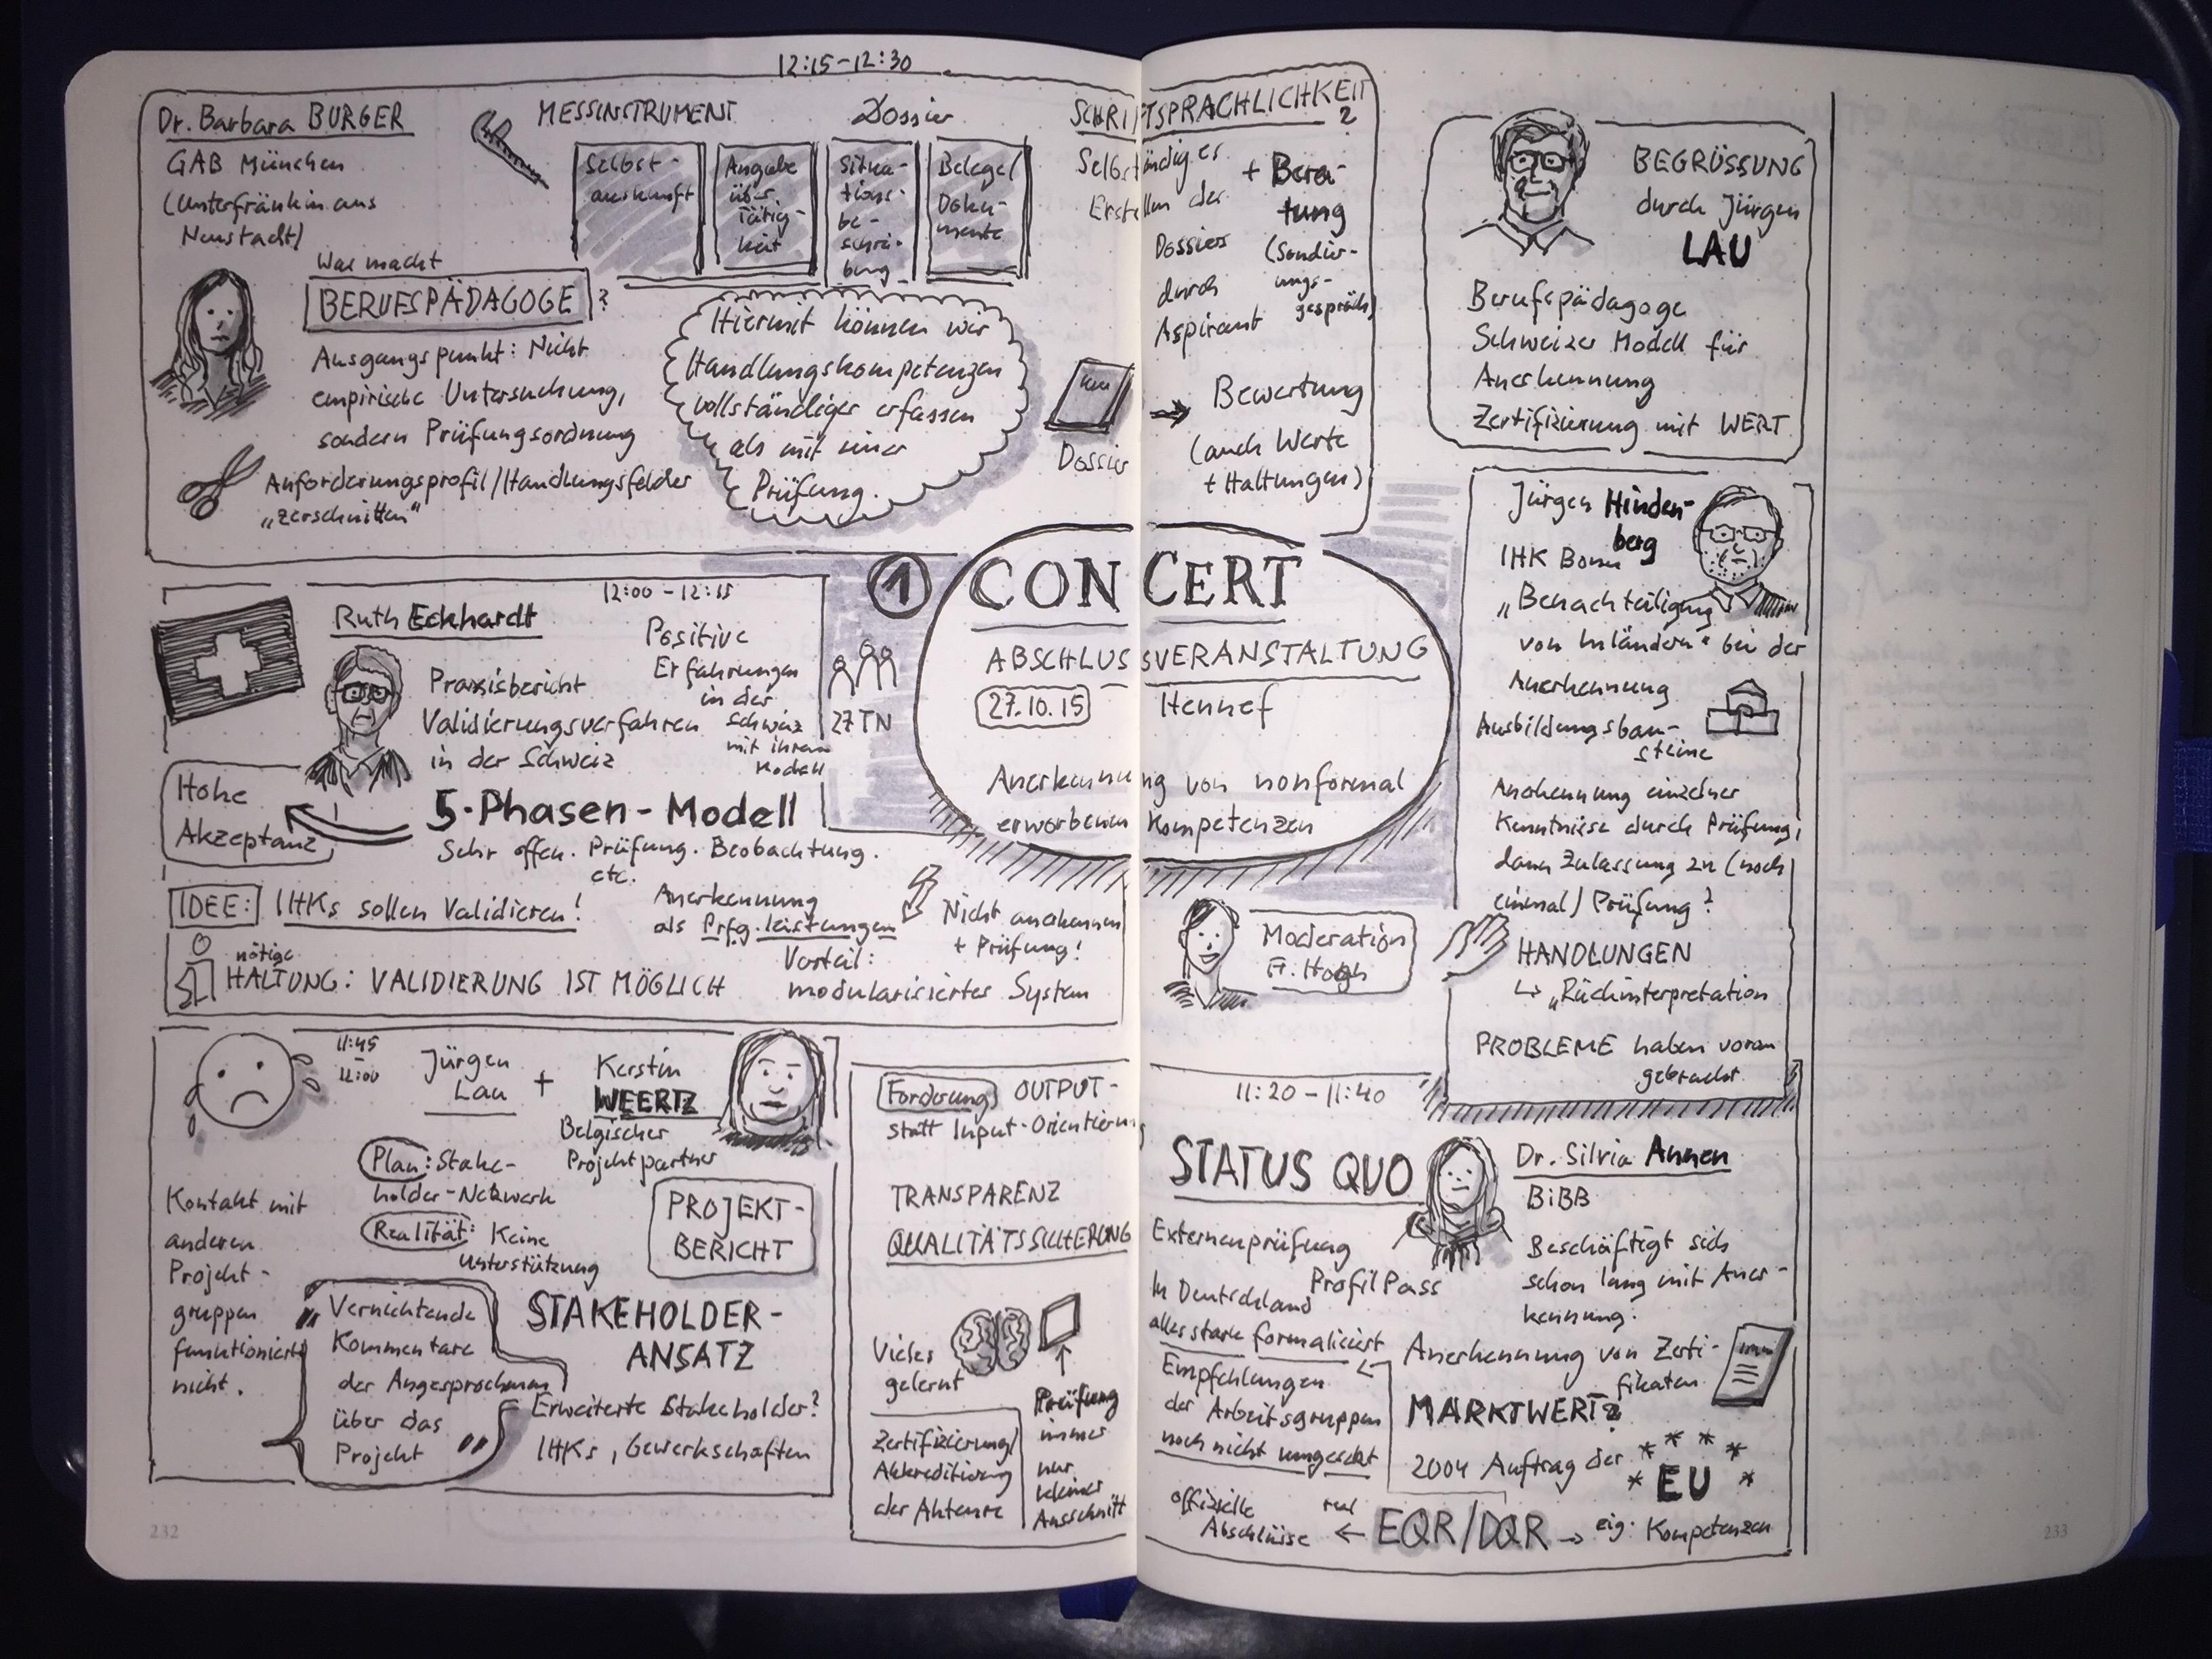 12:15-12:30
Dr. Barbara BURGER
GAB München
(Unterfränkin aus
Neustadt)
Was macht
BERUFSPÄDAGOGE?
Ausgangspunkt: Nicht
empirische Untersuchung,
sondern Prüfungsordnung
Anforderungsprofil/Handlungsfelder
„zerschnitten"
MESSINSTRUMENT
Dossier
Selbst-
auskunft
Angabe
über
Tätig-
keit
Situa-
tions-
be-
schrei-
bung
Belege/
Doku-
mente
Hiermit können wir
Handlungskompetenzen
vollständiger erfassen
als mit einer
Prüfung.
SCHRIFTSPRACHLICHKEIT
?
Selbständiges
Erstellen der
Dossiers
durch
Aspirant
+ Bera-
tung
(Sondier-
ungs-
gespräch)
Dossier
Bewertung
(auch Werte
+ Haltungen)
BEGRÜSSUNG
durch Jürgen
LAU
Berufspädagoge
Schweizer Modell für
Anerkennung
Zertifizierung mit WERT
1 CONCERT
ABSCHLUSSVERANSTALTUNG
27.10.15 Hennef
Anerkennung von nonformal
erworbenen Kompetenzen
27 TN
Ruth Eckhardt
12:00-12:15
Praxisbericht
Validierungsverfahren
in der Schweiz
Positive
Erfahrungen
in der
Schweiz
mit ihrem
Modell
Hohe
Akzeptanz
5-Phasen-Modell
Sehr offen. Prüfung. Beobachtung.
etc.
IDEE: IHKs sollen Validieren!
Anerkennung
als Prfg.leistungen
Nicht anerkennen
+ Prüfung!
nötige
HALTUNG: VALIDIERUNG IST MÖGLICH
Vorteil:
modularisiertes System
Moderation
Jürgen Hinden-
berg
IHK Bonn
„Benachteiligung
von Inländern" bei der
Anerkennung
Ausbildungsbau-
steine
Anerkennung einzelner
Kenntnisse durch Prüfung,
dann Zulassung zu (noch
einmal) Prüfung?
HANDLUNGEN
↳ „Rückinterpretation
PROBLEME haben voran
gebracht
11:45
-
12:00
Jürgen
Lau
+
Kerstin
WEERTZ
Belgischer
Projektpartner
Plan: Stake-
holder-Netzwerk
Realität: Keine
Unterstützung
PROJEKT-
BERICHT
Kontakt mit
anderen
Projekt-
gruppen
funktioniert
nicht.
„Vernichtende
Kommentare
der Angesprochenen
über das
Projekt"
STAKEHOLDER-
ANSATZ
Erweiterte Stakeholder?
IHKs, Gewerkschaften
Forderung OUTPUT-
statt Input-Orientierung
TRANSPARENZ
QUALITÄTSSICHERUNG
Vieles
gelernt
Zertifizierung/
Akkreditierung
der Akteure
Prüfung
immer
nur
kleiner
Ausschnitt
11:20-11:40
STATUS QUO
Dr. Silvia Annen
BiBB
Beschäftigt sich
schon lang mit Aner-
kennung.
Externenprüfung
ProfilPass
In Deutschland
alles stark formalisiert
Empfehlungen
der Arbeitsgruppen
noch nicht umgesetzt
Anerkennung von Zerti-
fikaten
MARKTWERT?
2004 Auftrag der
EU
offizielle
Abschlüsse
← EQR/DQR → eig. Kompetenzen
232
233